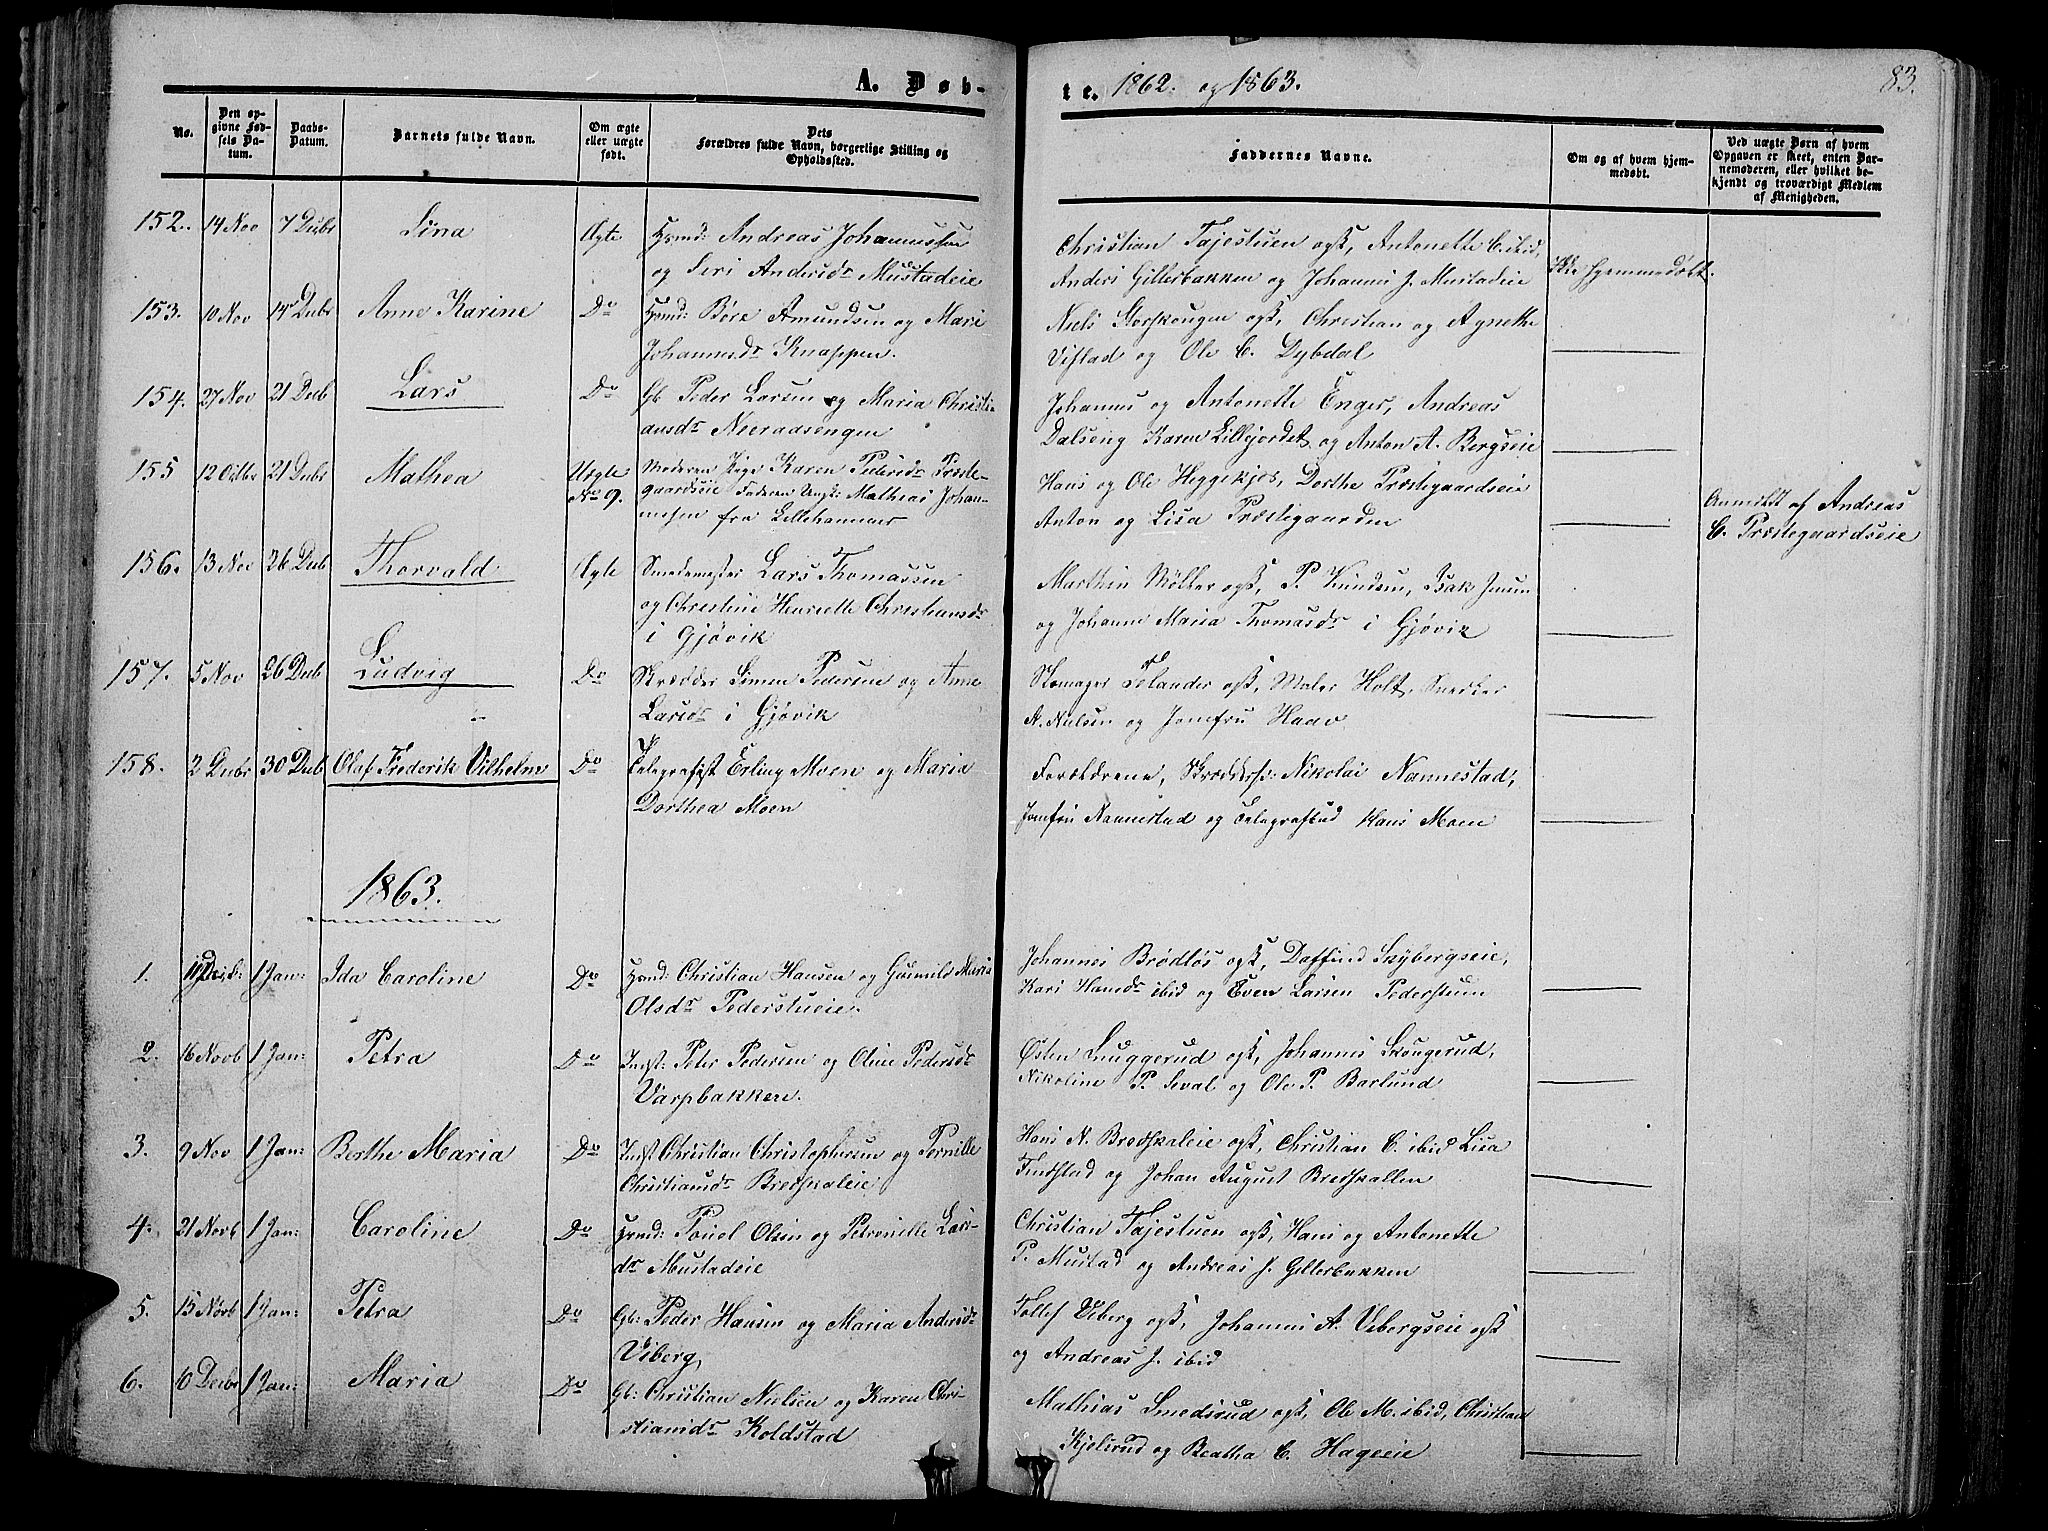 A. Døb-
te. 1862. og 1863.
83.
No.
Den opgivne Fødsels Datum.
Daabs-Datum.
Barnets fulde Navn.
Om ægte eller uægte født.
Dets Forældres fulde Navn, borgerlige Stilling og Opholdssted.
Faddernes Navne.
Om og af hvem hjemmedøbt.
Ved uægte Børn af hvem Opgaven er skeet, enten Barnemoderen, eller hvilket bekjendt og troværdigt Medlem af Menigheden.
152. 14 Nov 7 Decbr Lina Ægte Hsmd: Andreas Johannessen
og Siri Andersdr Mustadeie
Christian Tajestuen ogsk, Antonette C. ibid,
Anders Gillerbakken og Johannes J. Mustadeie
Ikke hjemmedøbt.
153. 10 Nov 14 Decbr Anne Karine Do Hsmd: Børe Amundsen og Mari
Johannesdr Knappen.
Niels Gorskougen ogsk, Christian og Agnethe
Vistad og Ole C. Dybdal
154. 27 Nov 21 Decb Lars Do Gb Peder Larsen og Maria Christi-
ansdr Neeraasengen
Johannes og Antonette Enger, Andreas
Dalseng Karen Lillejordet og Anton A. Bergseie
155 12 Octbr 21 Decbr Mathea Uægte
No 9.
Moderen Pige Karen Pedersdr Præste-
gaardseie Faderen Ungk: Mathias Johan-
nesen fra Lillehammer
Hans og Ole Heggekjos, Dorthe Præstegaardseie
Anton og Lisa Præstegaarden
Anmeldt af Andreas
C. Præstegaardseie
156. 13 Nov 26 Decb Thorvald Ægte Smedemester Lars Thomassen
og Christine Henriette Christiansdr
i Gjøvik
Marthin Møller ogsk, P. Knudsen, Isak Jensen
og Johanne Maria Thomasdr i Gjøvik
157. 5 Nov 26 Decb Ludvig Do Skrædder Simen Pedersen og Anne
Larsdr i Gjøvik
Skomager Felander ogsk, Maler Holt, Snedker
A. Nielsen og Jomfru Haav
158. 2 Decbr 30 Decb Olaf Frederik Vilhelm Do Telegrafist Erling Moen og Maria
Dorthea Moen
Forældrene, Skræddersv: Nikolai Nannestad,
Jomfru Nannestad og Telegrafbud Hans Moen
1863.
1. 1 Jan: Ida Caroline Do Hsmd: Christian Hansen og Gunnild Maria
Olsdr Pederstueie.
Johannes Brødløs ogsk, Daffind Skybergseie,
Kari Hansdr ibid og Even Larsen Pederstuen
2. 16 Novb 1 Jan: Petra Do Indst: Peter Pedersen og Oline Pedersdr
Varpbakken.
Østen Snuggerud ogsk, Johannes Skougerud,
Nikoline P. Seval og Ole P. Barlund
3. 9 Nov 1 Jan: Berthe Maria Do Indst Christian Christophersen og Pernille
Christiansdr Bredskaleie
Hans N. Bredskaleie ogsk, Christian C. ibid Lisa
Tindstad og Johan August Bredskallen
4. 21 Novb 1 Jan: Caroline Do Hsmd: Pouel Olsen og Petronille Lars-
dr Mustadeie
Christian Tajestuen ogsk, Hans og Antonette
P. Mustad og Andreas J. Gillerbakken
5. 15 Novb 1 Jan: Petra Do Gb: Peder Hansen og Maria Andersdr
Viberg,
Tollef Viberg ogsk, Johannes A. Vibergseie ogsk
og Andreas J. ibid
6. 6 Decbr 1 Jan: Maria Do Gb: Christian Nielsen og Karen Chri-
stiansdr Koldstad
Mathias Smedsrud ogsk, Ole M. ibid, Christian
Kjelsrud og Beatha C. Hageeie